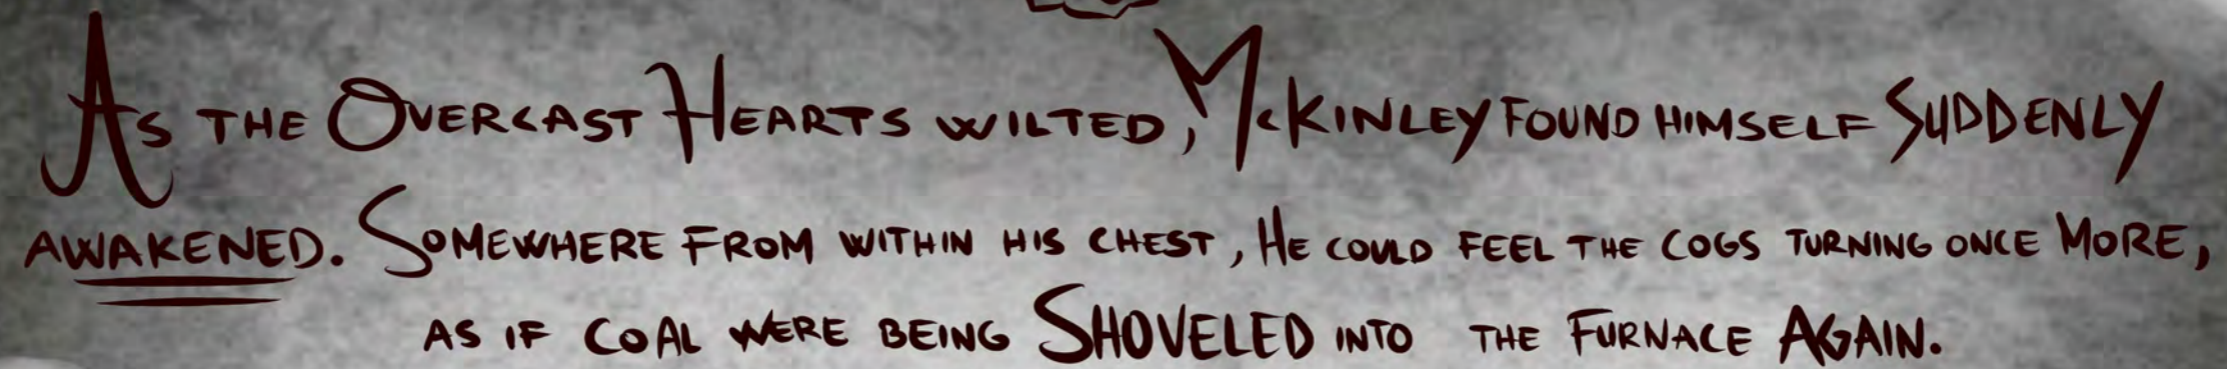 As the Overcast Hearts wilted, McKinley found himself Suddenly
awakened. Somewhere from within his chest, He could feel the cogs turning once More,
as if coal were being Shoveled into the Furnace Again.